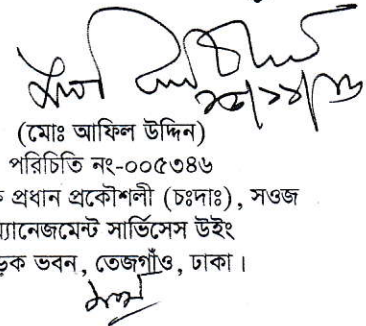 (মোঃ আফিল উদ্দিন)
পরিচিতি নং-০০৫৩৪৬
প্রধান প্রকৌশলী (চঃদাঃ), সওজ
ম্যানেজমেন্ট সার্ভিসেস উইং
ভবন, তেজগাঁও, ঢাকা।